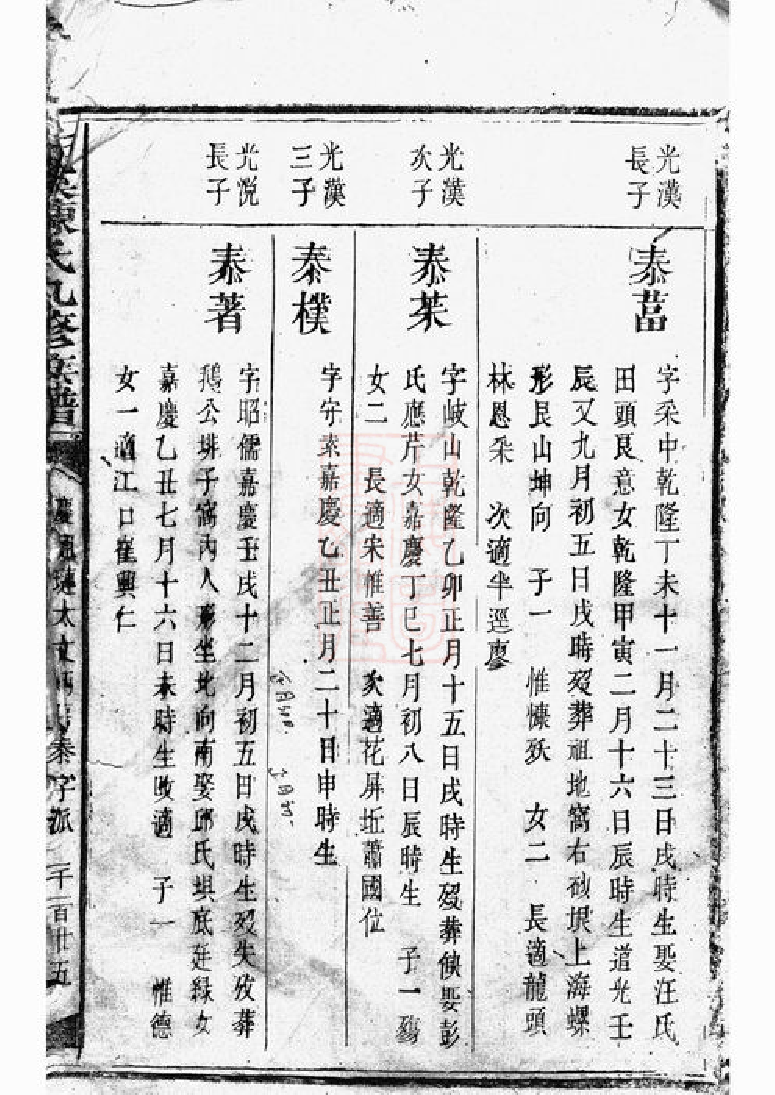 光漢
長子
泰菑
字采中乾隆丁未十一月二十三日戌時生娶汪氏
田頭艮意女乾隆甲寅二月十六日辰時生道光壬
辰又九月初五日戌時歿葬祖地窩右砂垻上海螺
形艮山坤向 子一 惟慷殀 女二 長適龍頭
林恩采 次適半逕廖
光漢
次子
泰茱
字岐山乾隆乙卯正月十五日戌時生歿葬俟娶彭
氏應芹女嘉慶丁巳七月初八日辰時生 子一殤
女二 長適宋惟善 次適花屏坵蕭國位
光漢
三子
泰樸
字守素嘉慶乙丑正月二十日申時生
光說
長子
泰著
字昭儒嘉慶壬戌十二月初五日戌時生歿失攷葬
鵝公排子窩內人形坐北向南娶邱氏垻底廷緑女
嘉慶乙丑七月十六日未時生改適 子一 惟德
女一適江口崔興仁
陳氏九修族譜
泰字派
二千一百廿五